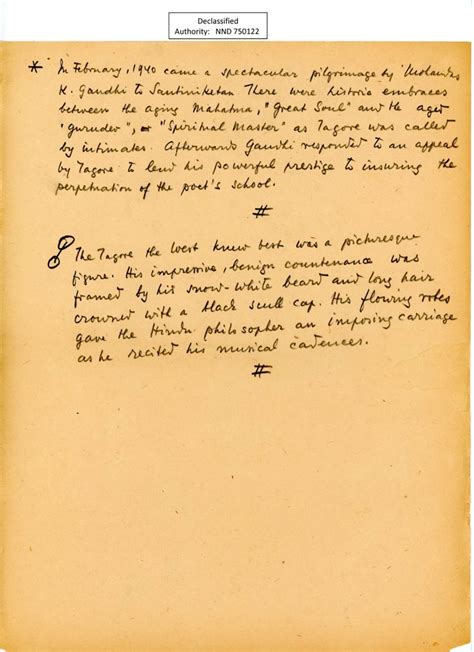 Declassified
Authority: NND 750122
* In February, 1940 came a spectacular pilgrimage by Mohandas
K. Gandhi to Santiniketan. There were historic embraces
between the aging Mahatma, "Great Soul" and the aged
"gurudev", or "Spiritual Master" as Tagore was called
by intimates. Afterwards Gandhi responded to an appeal
by Tagore to lend his powerful prestige to insuring the
perpetuation of the poet's school.
#
The Tagore the West knew best was a picturesque
figure. His impressive, benign countenance was
framed by his snow-white beard and long hair
crowned with a black scull cap. His flowing robes
gave the Hindu philosopher an imposing carriage
as he recited his musical cadences.
#